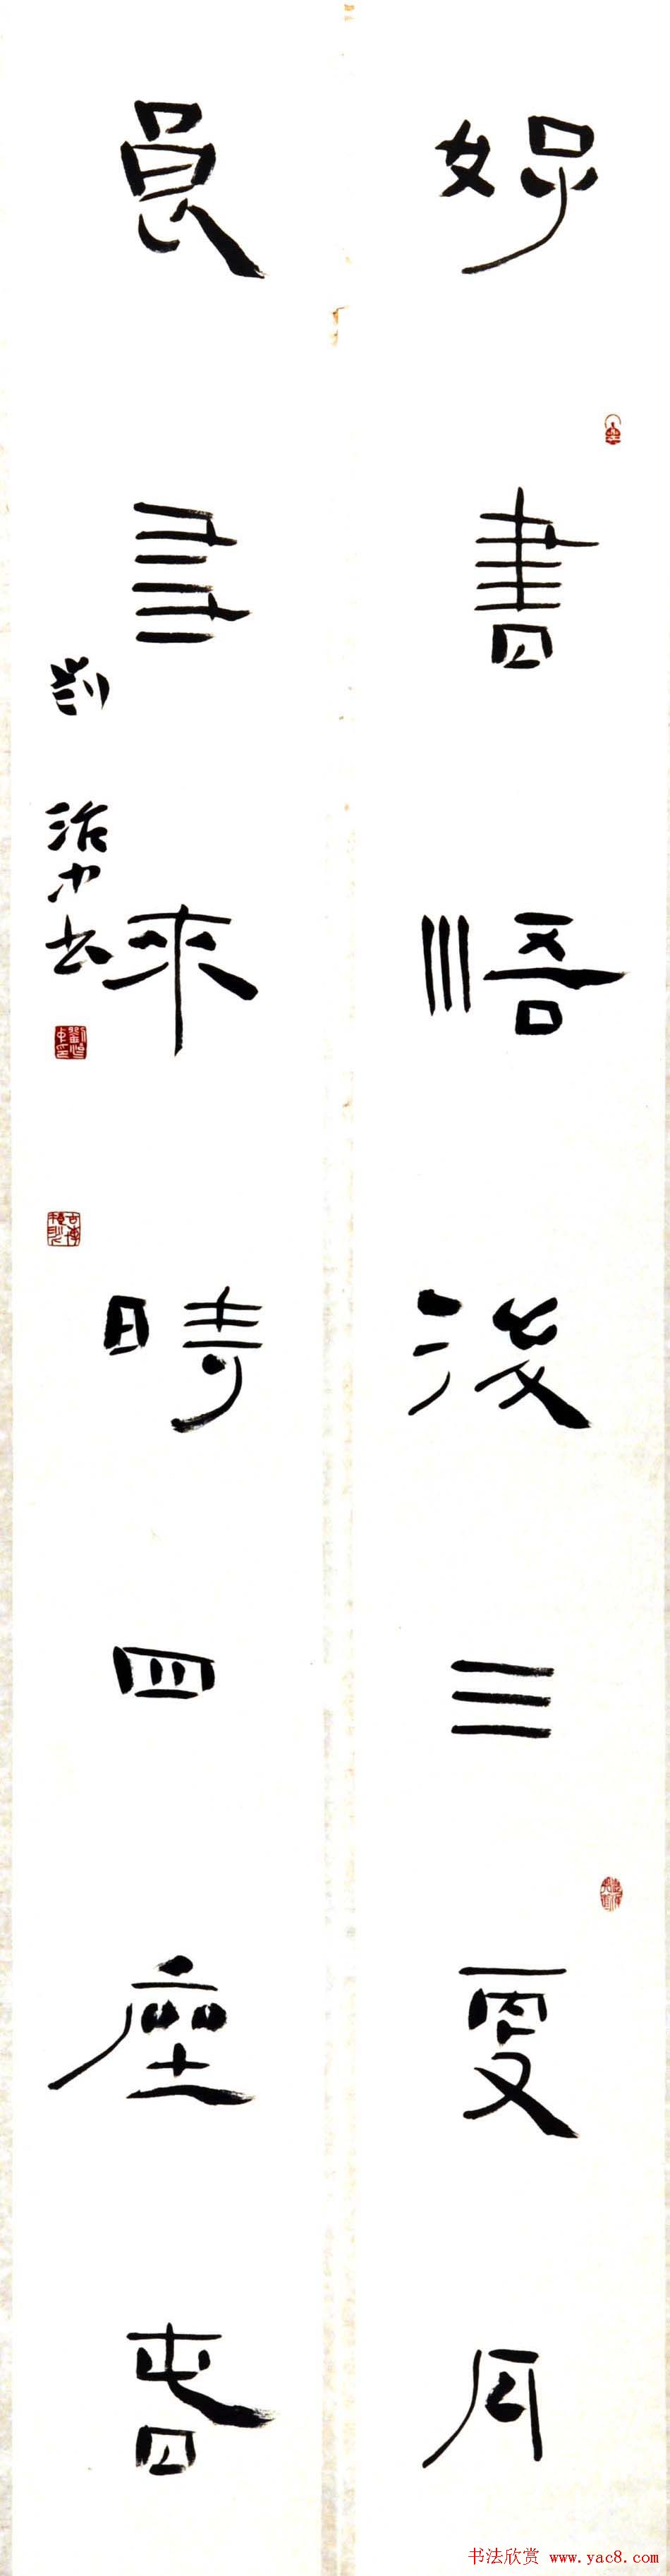 好書悟後三更月
良友來時四座春
劉治中书
书法欣赏 www.yac8.com